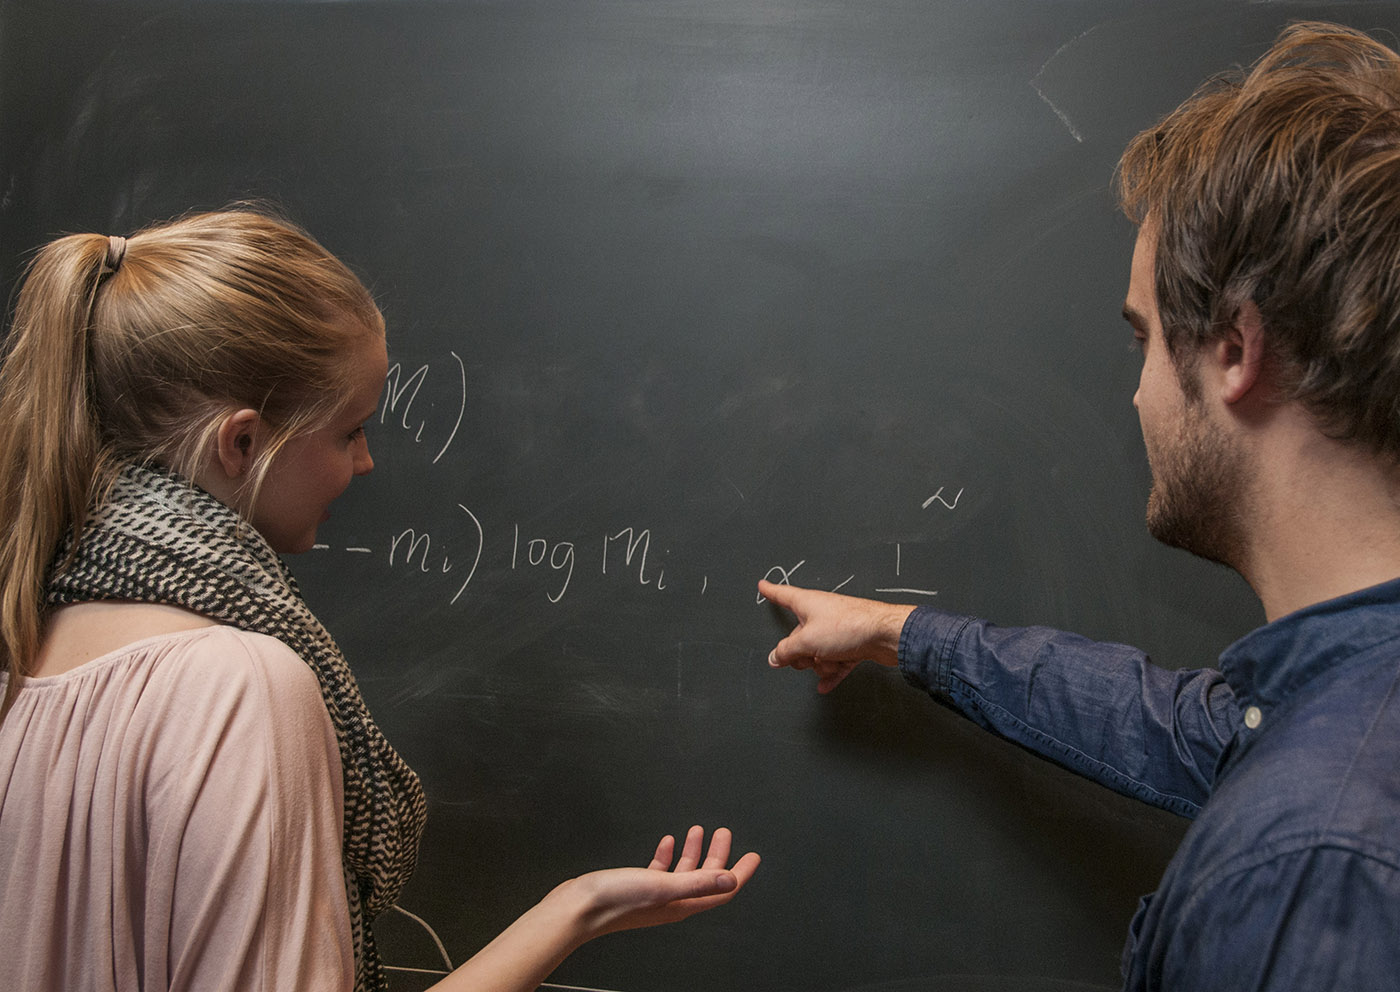 m_i)
-- m_i) log m_i, α
~
1